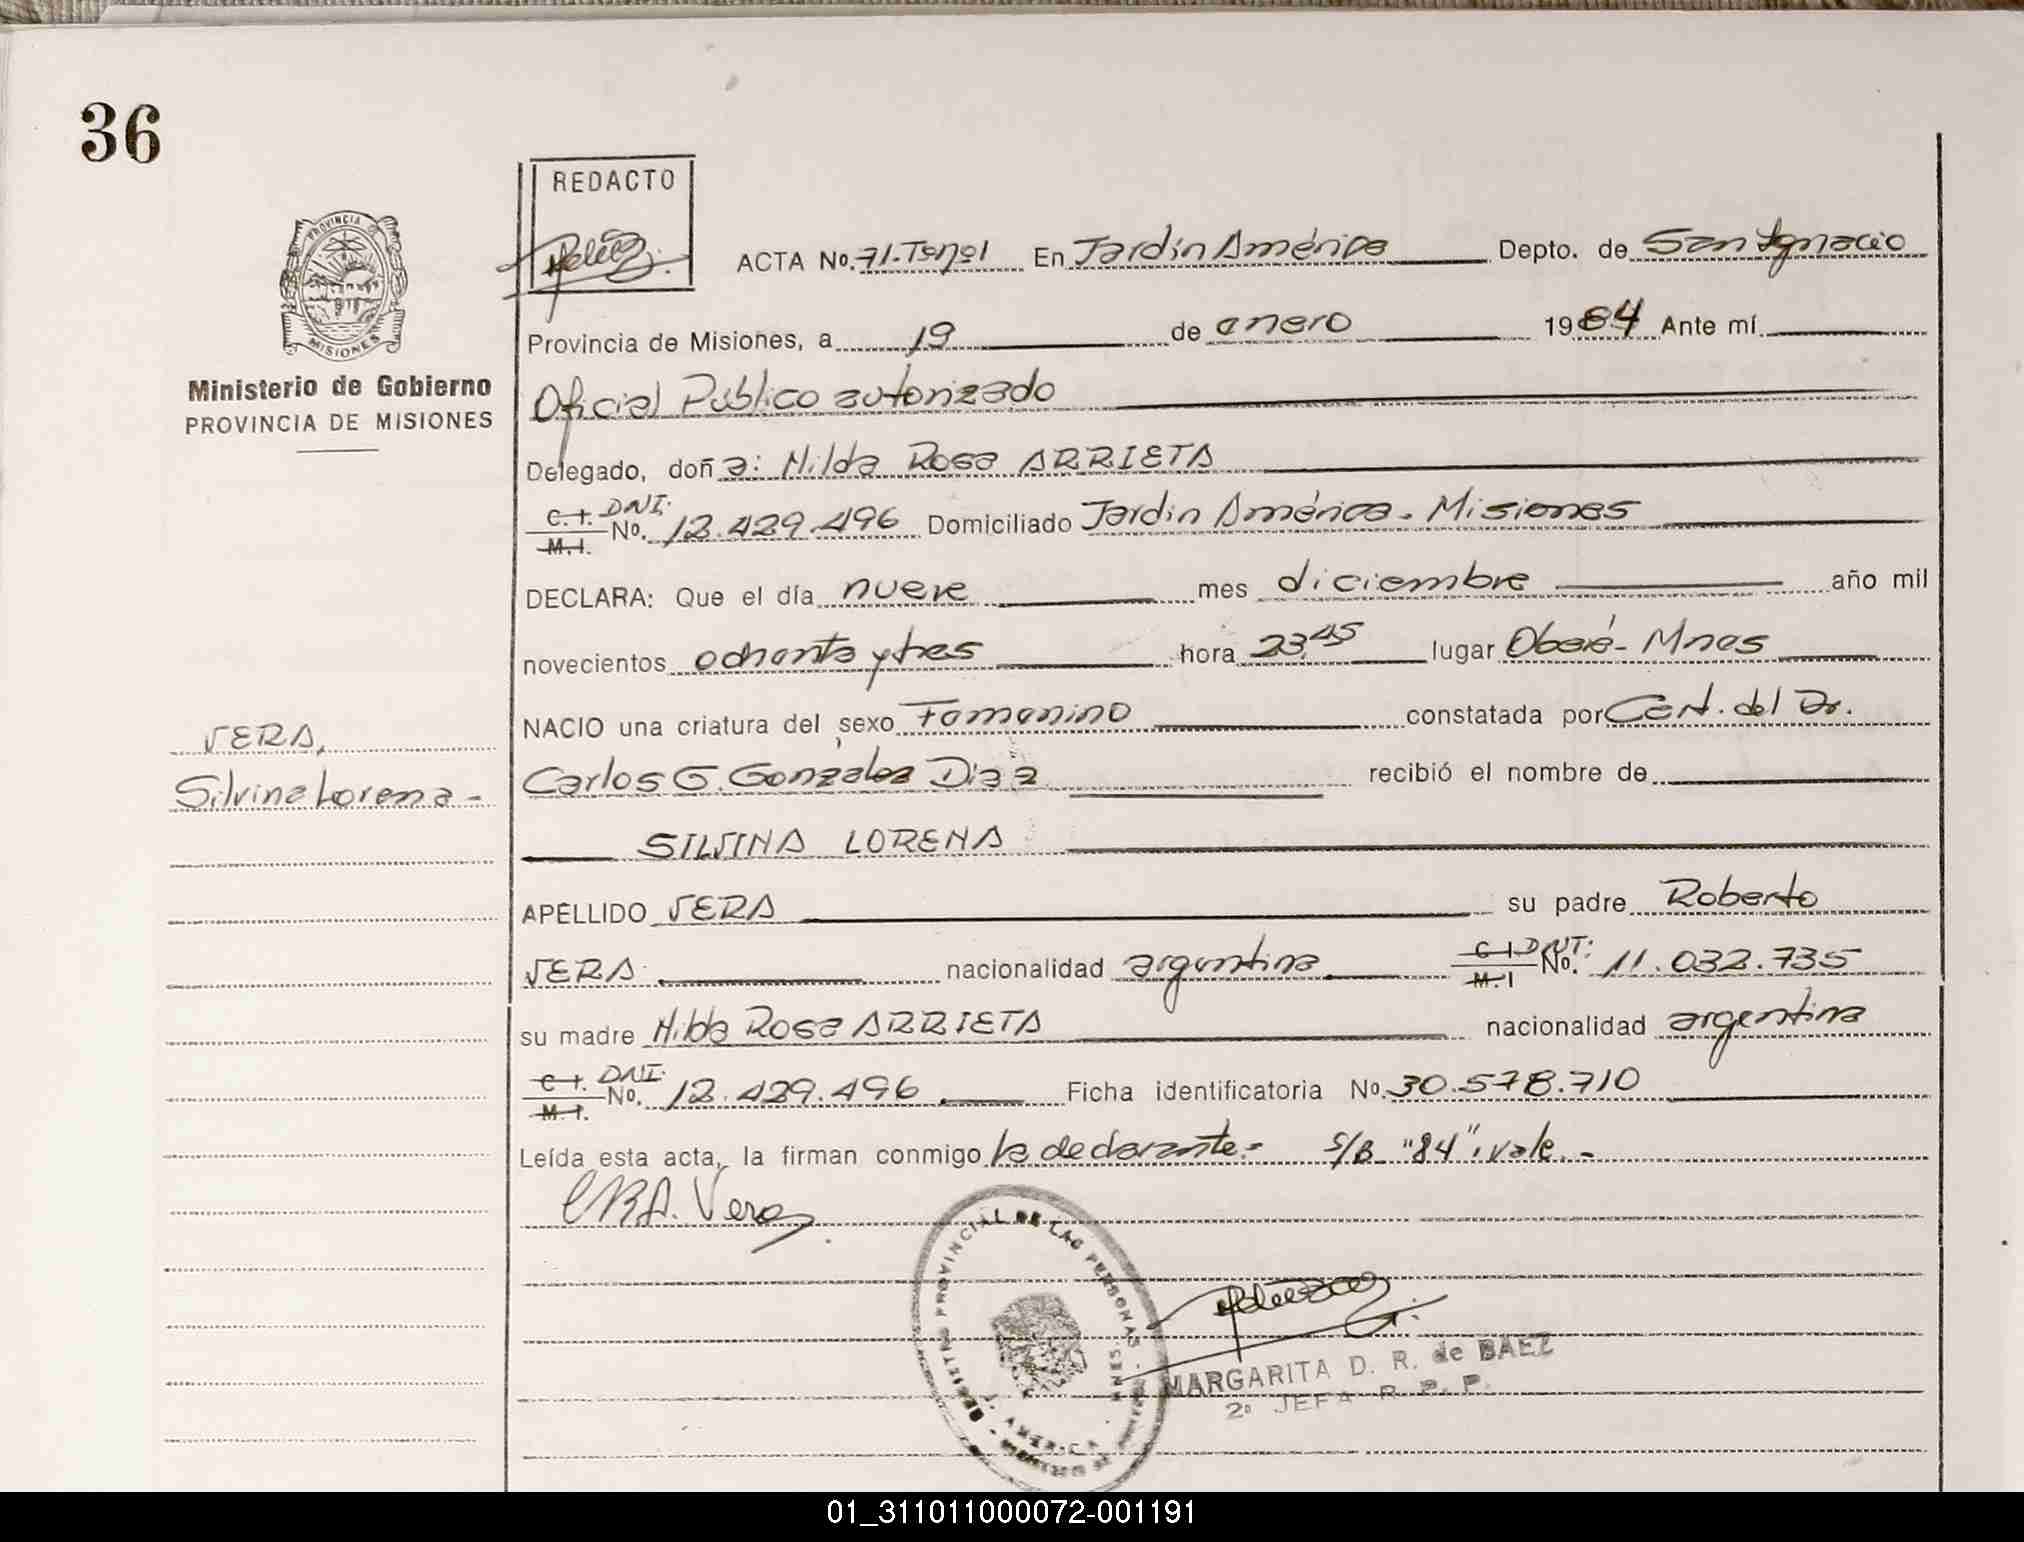 36
REDACTO
PROVINCIA
MISIONES
Ministerio de Gobierno
PROVINCIA DE MISIONES
ACTA No. 71-Tomo I En Jardín América Depto. de San Ignacio
Provincia de Misiones, a 19 de enero 1984 Ante mí
Oficial Público autorizado
Delegado, doña: Hilda Rosa ARRIETA
C.I. M.I. DNI. No. 12.429.496 Domiciliado Jardín América - Misiones
DECLARA: Que el día nueve mes diciembre año mil
novecientos ochenta y tres hora 23,45 lugar Oberá - Mnes
NACIO una criatura del sexo Femenino constatada por Cert. del Dr.
Carlos G. González Díaz recibió el nombre de
SILVINA LORENA
APELLIDO VERA su padre Roberto
VERA nacionalidad argentina C I M.I DNI: No. 11.032.735
su madre Hilda Rosa ARRIETA nacionalidad argentina
C I. M.I. DNI. No. 12.429.496 Ficha identificatoria No. 30.578.710
Leída esta acta, la firman conmigo la declarante= S/B "84": vale.-
VERA,
Silvina Lorena -
Vera
REGISTRO PROVINCIAL DE LAS PERSONAS - MNES.
J. AMERICA
MARGARITA D. R. de BAEZ
2º JEFA R. P. P.
01_311011000072-001191